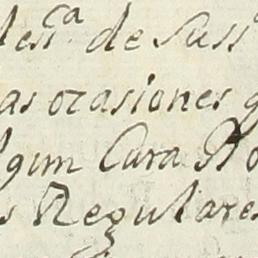 de Suss
as ocasiones
lgun Cura
s Regulares